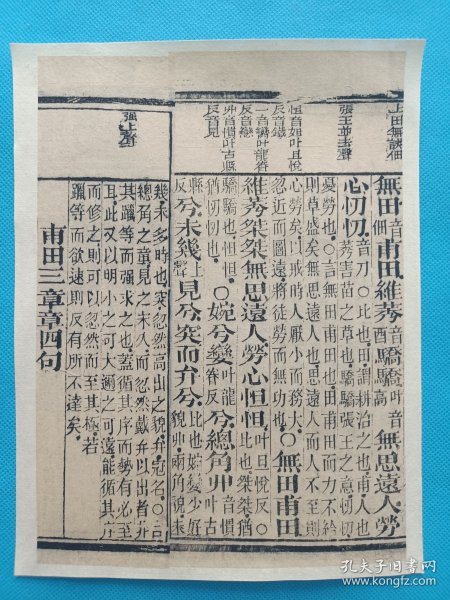 張王並去聲
丱音慣叶古縣
反音見
强上聲
無田音佃甫田維莠音酉驕驕叶音高無思遠人勞
心忉忉音刀○比也田謂耕治之也甫大也
莠害苗之草也驕驕張王之意忉忉
憂勞也○言無田甫田也田甫田而力不給
則草盛矣無思遠人也思遠人而人不至則
心勞矣以戒時人厭小而務大
忽近而圖遠將徒勞而無功也○無田甫田
維莠桀桀無思遠人勞心怛怛叶旦悅反○比也桀桀猶
驕驕也怛怛猶忉忉也○婉兮孌叶龍眷反兮總角丱音慣叶古縣
反兮未幾上聲見兮突而弁兮比也婉孌少好貌丱兩角貌未
幾未多時也突忽然高出之貌弁冠名○言
總角之童見之未久而忽然戴弁以出者非
其躐等而强求之也蓋循其序而勢有必至
耳此又以明小之可大邇之可遠能循其序
而修之則可以忽然而至其極若
躐等而欲速則反有所不達矣
甫田三章章四句
孔夫子旧书网
www.kongfz.com